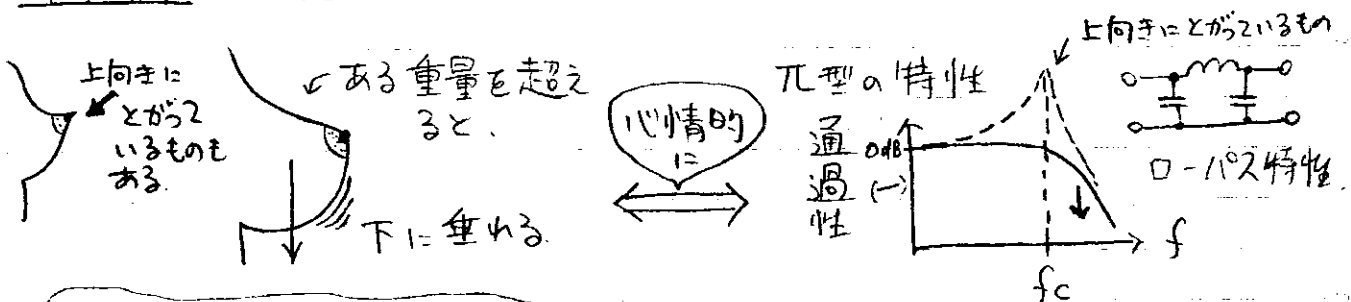 上向きに
とがって
いるものも
ある.
ある重量を超え
ると、
下に垂れる
心情的
に
π型の特性
上向きにとがっているもの
通過性
0dB
(一)
ローパス特性.
f
fc